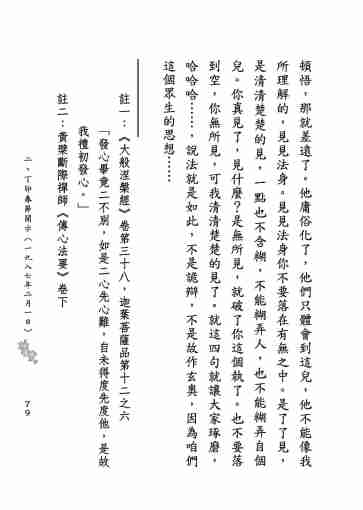 頓悟，那就差遠了。他庸俗化了，他們只體會到這兒，他不能像我
所理解的，見見法身。見見法身你不要落在有無之中。是了了見，
是清清楚楚的見，一點也不含糊，不能糊弄人，也不能糊弄自個
兒。你真見了，見什麼？是無所見，就破了你這個執了。也不要落
到空，你無所見，可我清清楚楚的見了。就這四句就讓大家琢磨，
哈哈哈……，說法就是如此，不是詭辯，不是故作玄奧，因為咱們
這個眾生的思想……
註一：《大般涅槃經》卷第三十八，迦葉菩薩品第十二之六
「發心畢竟二不別，如是二心先心難，自未得度先度他，是故
我禮初發心。」
註二：黃檗斷際禪師《傳心法要》卷下
二、丁卯春節開示（一九八七年二月一日）
79